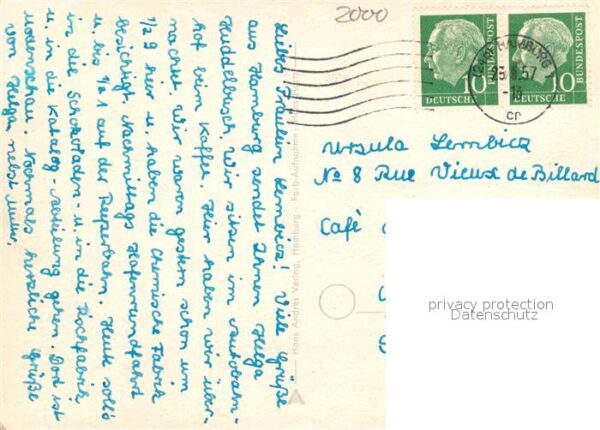 2000
Liebes Fräulein Lembicz! Viele Grüße
aus Hamburg sendet Ihnen Helga
Huddelbusch. Wir sitzen im Autobahn-
hof beim Kaffee. Hier haben wir über-
nachtet. Wir waren gestern schon um
1/2 9 hier u. haben die Chemische Fabrik
besichtigt. Nachmittags Hafenrundfahrt
u. bis 1/2 1 auf der Reeperbahn. Heute soll's
in die Schokoladen- u. in die Fischfabrik
u. in die Katalog-Abteilung gehen. Dort ist
Modenschau. Nochmals herzliche Grüße
von Helga nebst Mutti.
Hans Andres Verlag, Hamburg · Farb-Aufnahme
HAMBURG
57
-18
cr
10
DEUTSCHE
BUNDESPOST
10
DEUTSCHE
BUNDESPOST
Ursula Lembicz
No 8 Rue Vieux de Billard
Café
privacy protection
Datenschutz